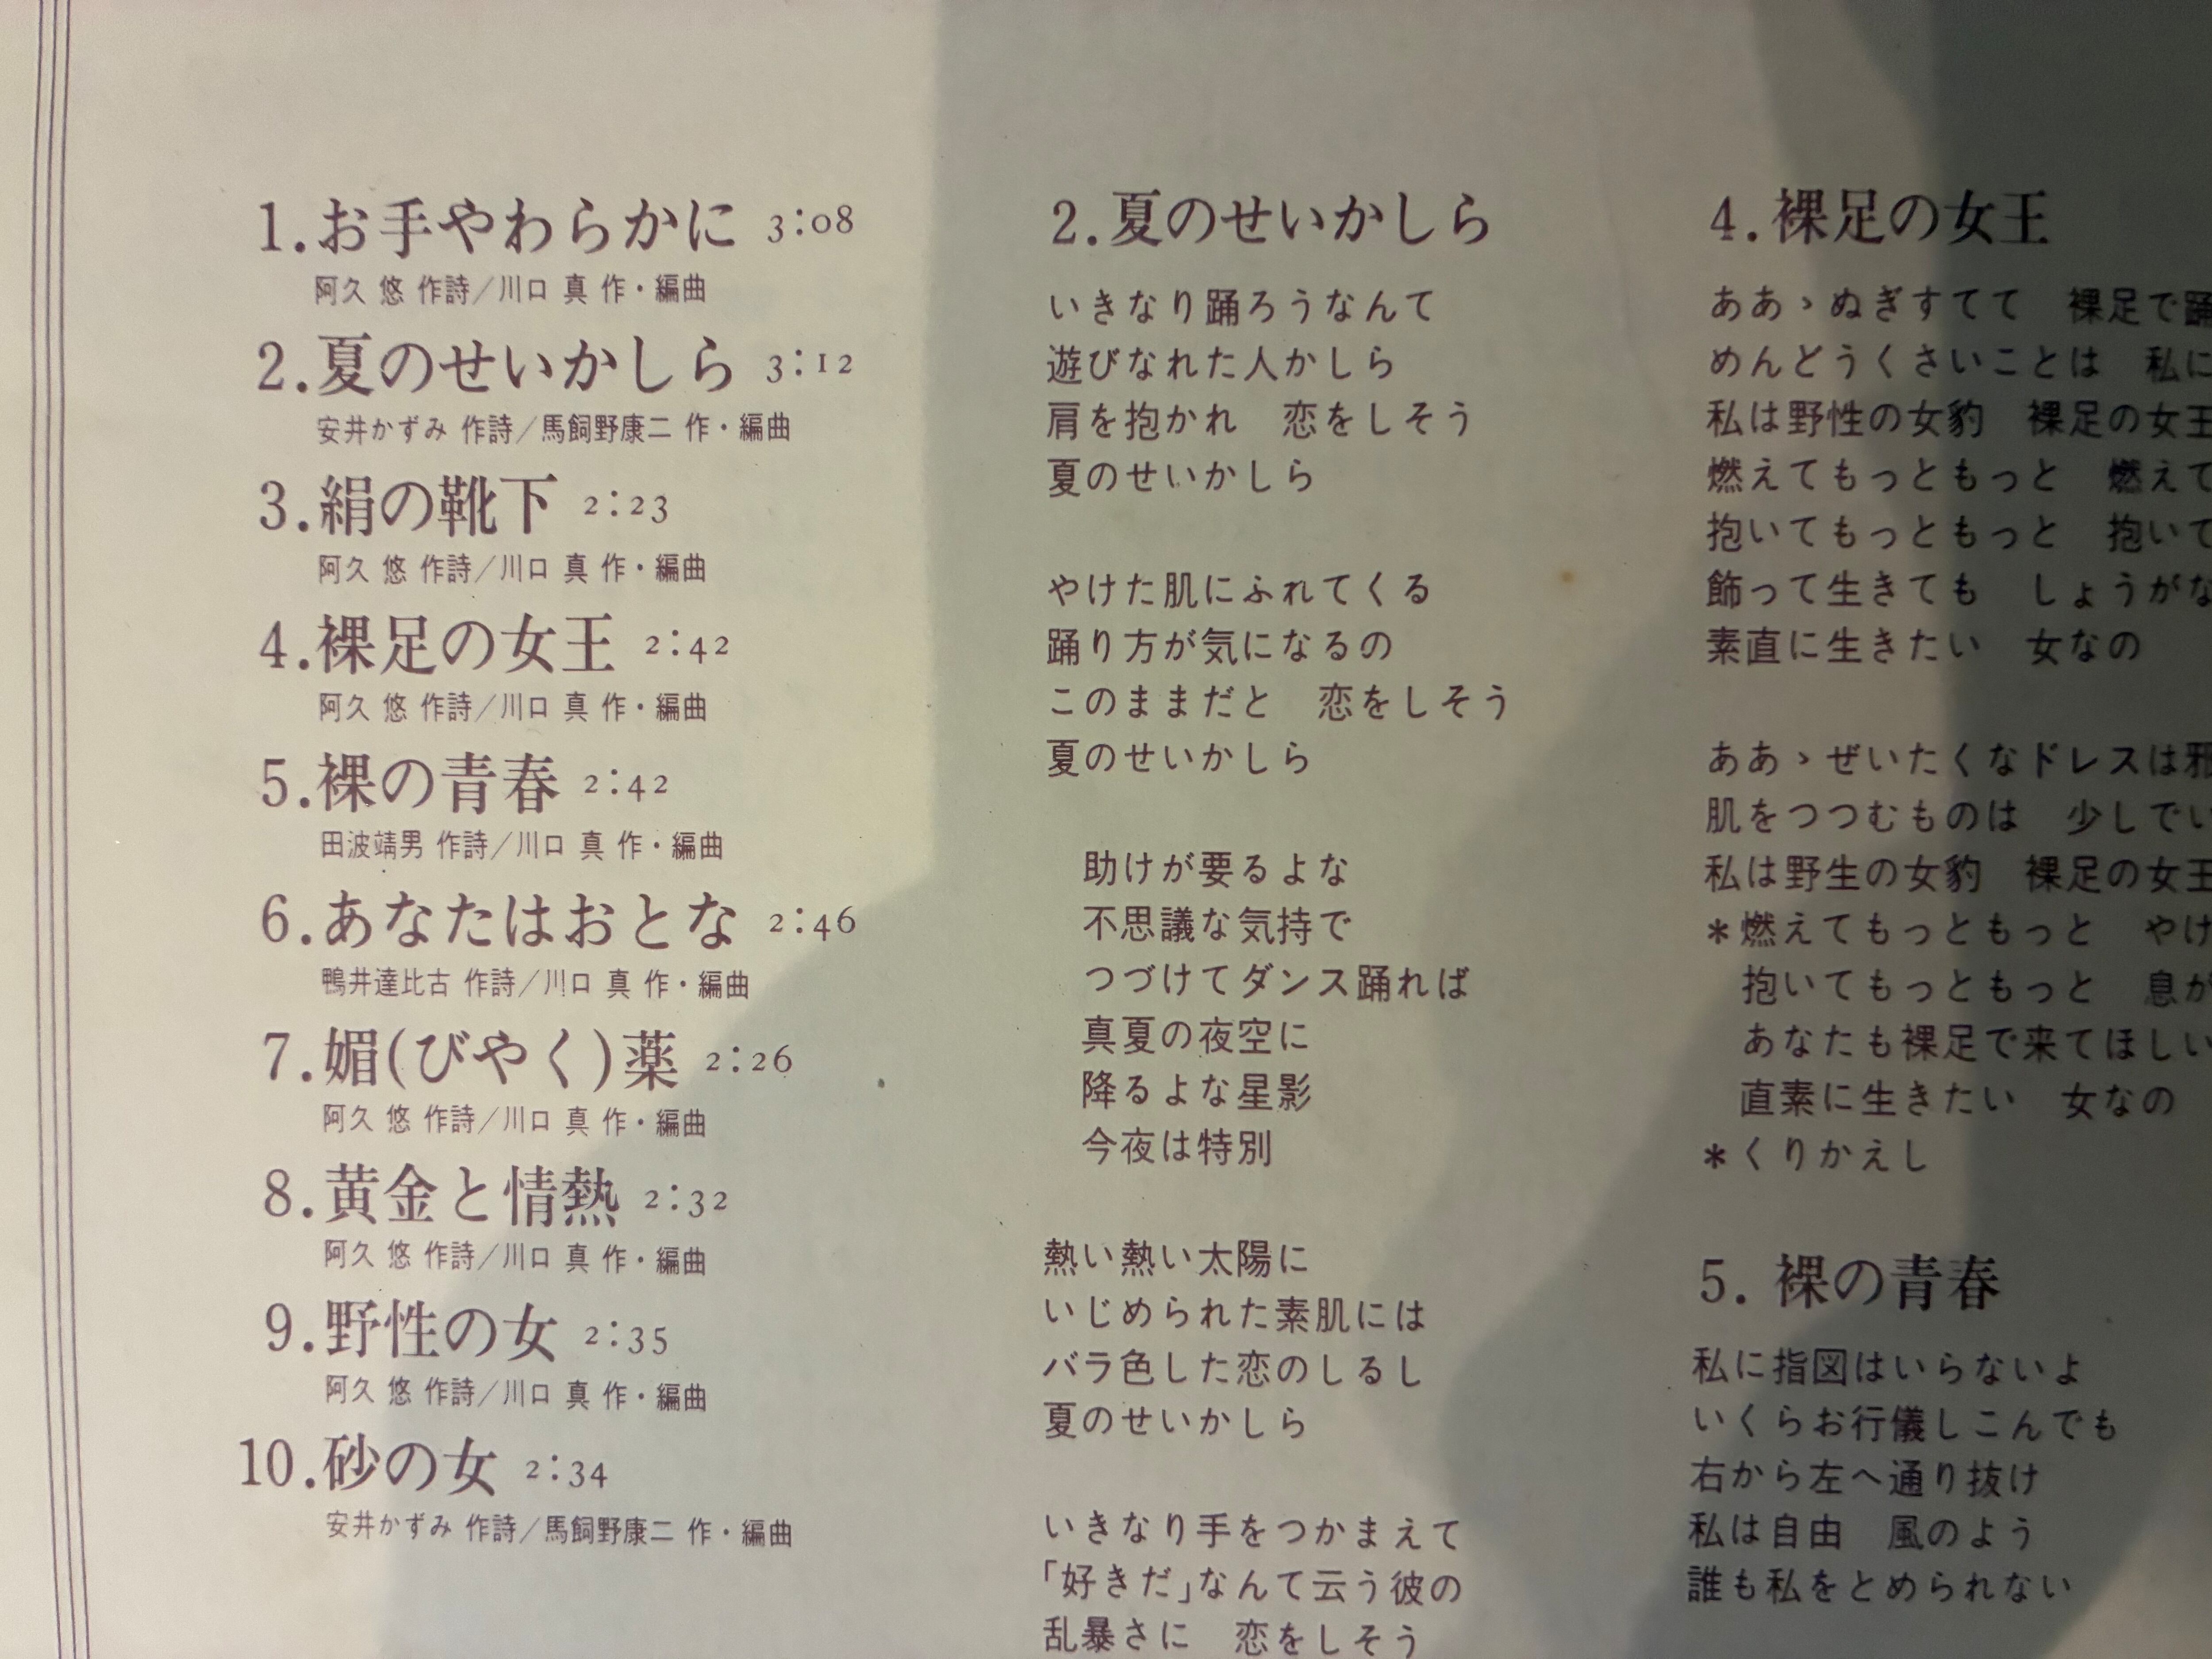 1.お手やわらかに 3:08
阿久 悠 作詩／川口 真 作・編曲
2.夏のせいかしら 3:12
安井かずみ 作詩／馬飼野康二 作・編曲
3.絹の靴下 2:23
阿久 悠 作詩／川口 真 作・編曲
4.裸足の女王 2:42
阿久 悠 作詩／川口 真 作・編曲
5.裸の青春 2:42
田波靖男 作詩／川口 真 作・編曲
6.あなたはおとな 2:46
鴨井達比古 作詩／川口 真 作・編曲
7.媚(びやく)薬 2:26
阿久 悠 作詩／川口 真 作・編曲
8.黄金と情熱 2:32
阿久 悠 作詩／川口 真 作・編曲
9.野性の女 2:35
阿久 悠 作詩／川口 真 作・編曲
10.砂の女 2:34
安井かずみ 作詩／馬飼野康二 作・編曲
2.夏のせいかしら
いきなり踊ろうなんて
遊びなれた人かしら
肩を抱かれ　恋をしそう
夏のせいかしら
やけた肌にふれてくる
踊り方が気になるの
このままだと　恋をしそう
夏のせいかしら
助けが要るよな
不思議な気持で
つづけてダンス踊れば
真夏の夜空に
降るよな星影
今夜は特別
熱い熱い太陽に
いじめられた素肌には
バラ色した恋のしるし
夏のせいかしら
いきなり手をつかまえて
「好きだ」なんて云う彼の
乱暴さに　恋をしそう
4.裸足の女王
ああゝぬぎすてて　裸足で踊
めんどうくさいことは　私に
私は野性の女豹　裸足の女王
燃えてもっともっと　燃えて
抱いてもっともっと　抱いて
飾って生きても　しょうがな
素直に生きたい　女なの
ああゝぜいたくなドレスは邪
肌をつつむものは　少しでい
私は野生の女豹　裸足の女王
＊燃えてもっともっと　やけ
抱いてもっともっと　息が
あなたも裸足で来てほしい
直素に生きたい　女なの
＊くりかえし
5. 裸の青春
私に指図はいらないよ
いくらお行儀しこんでも
右から左へ通り抜け
私は自由　風のよう
誰も私をとめられない